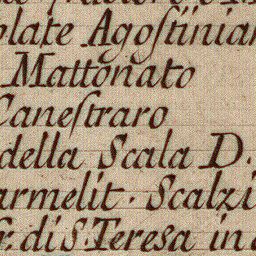 olate Agostinian
Mattonato
Canestraro
della Scala D.
armelit. Scalzi
r. di S. Teresa in